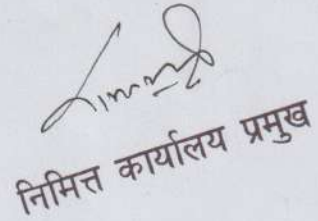 निमित्त कार्यालय प्रमुख